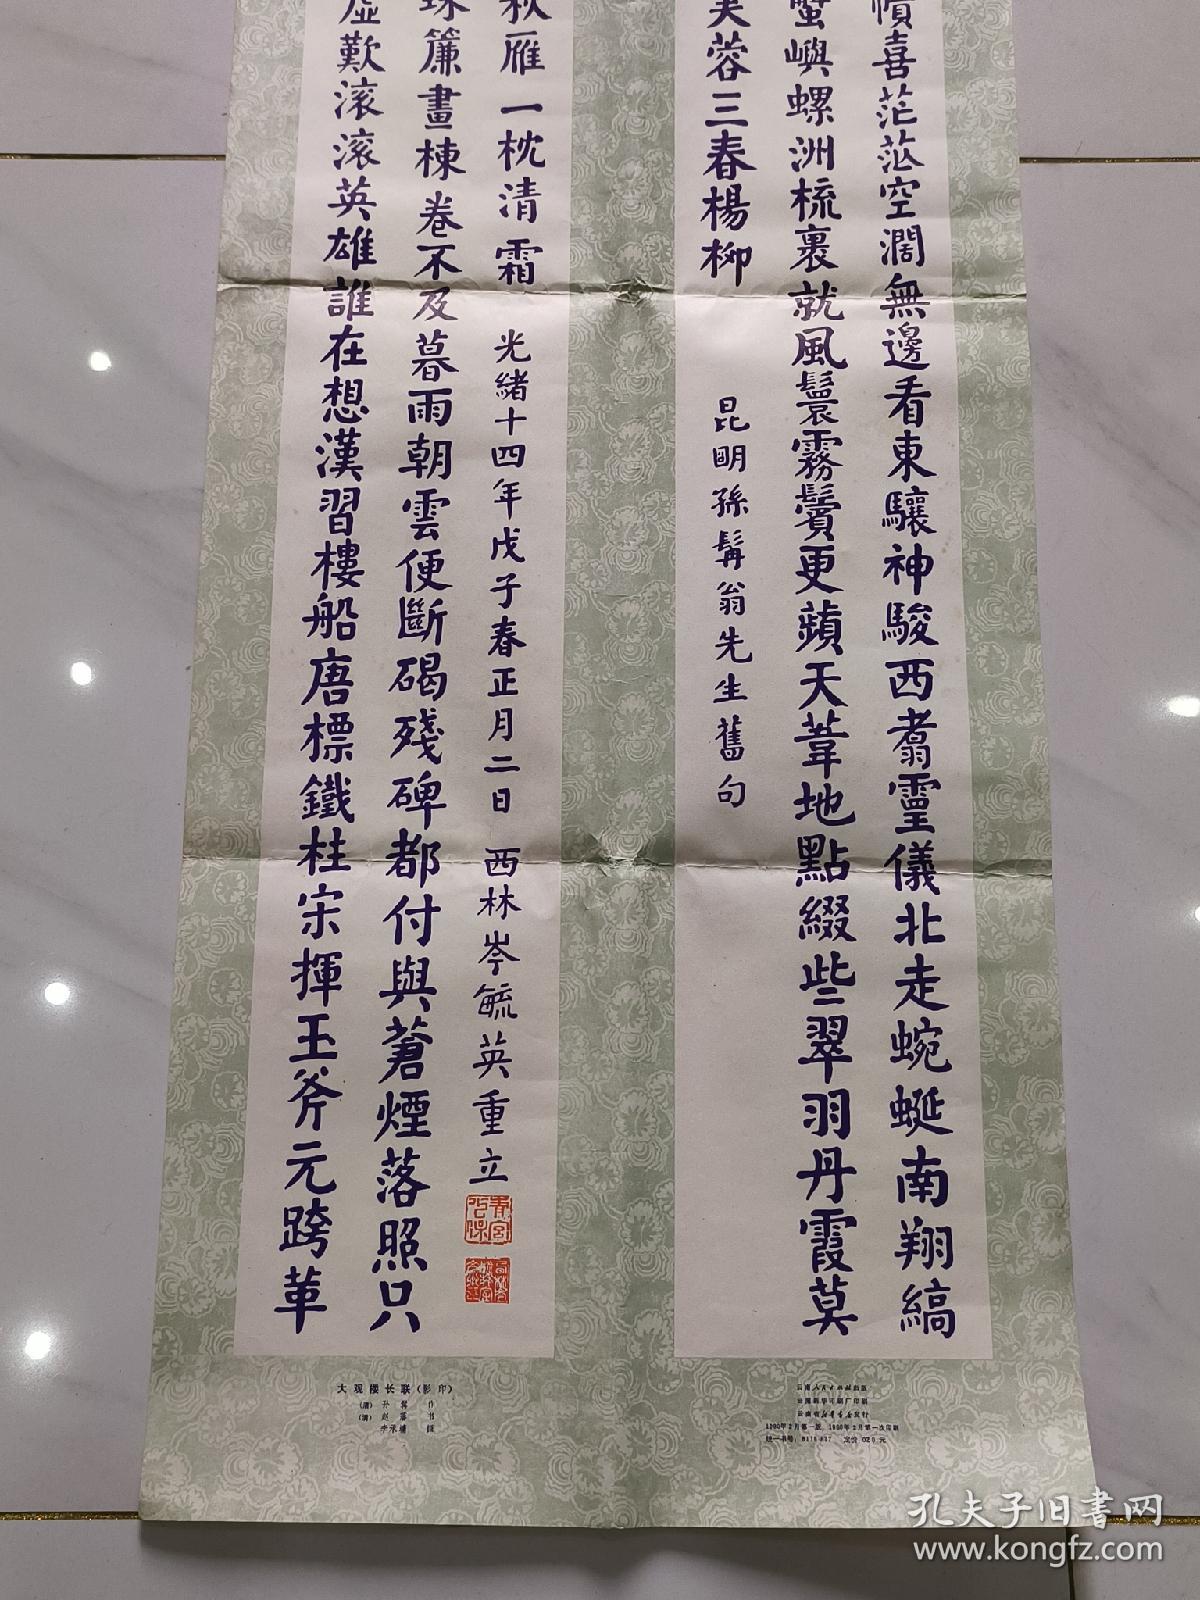 幘喜茫茫空濶無邊看東驤神駿西翥靈儀北走蜿蜒南翔縞
蟹嶼螺洲梳裹就風鬟霧鬢更蘋天葦地點綴些翠羽丹霞莫
芙蓉三春楊柳
昆明孫髯翁先生舊句
虛歎滚滚英雄誰在想漢習樓船唐標鐵柱宋揮玉斧元跨革
珠簾畫棟卷不及暮雨朝雲便斷碣殘碑都付與蒼煙落照只
秋雁一枕清霜
光緒十四年戊子春正月二日 西林岑毓英重立
大观楼长联(影印)
(清) 孙髯 作
(清) 赵藩 书
云南人民出版社出版
云南新华印刷厂印刷
云南省新华书店发行
孔夫子旧书网
www.kongfz.com